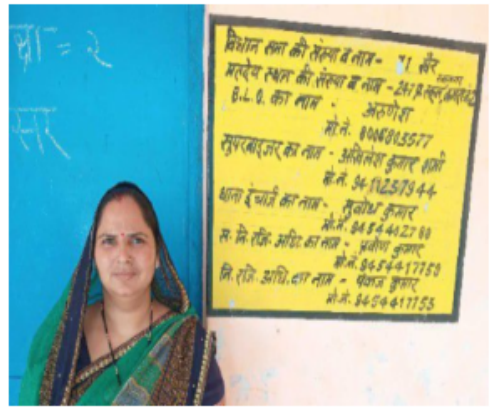 क्षा = २
सर
विधान सभा की संख्या व नाम - 71 खैर
मतदेय स्थल की संख्या व नाम - 247
B.L.O. का नाम - अरुणेश
मो.नं.
सुपरवाइजर का नाम - अखिलेश कुमार शर्मा
मो.नं. 9411257944
थाना इंचार्ज का नाम - सुबोध कुमार
मो.नं. 9454402780
स. नि. रजि. अधि. का नाम - प्रवीण कुमार
मो.नं. 9454417759
नि. रजि. अधि. का नाम - पंकज कुमार
मो.नं. 9454417753